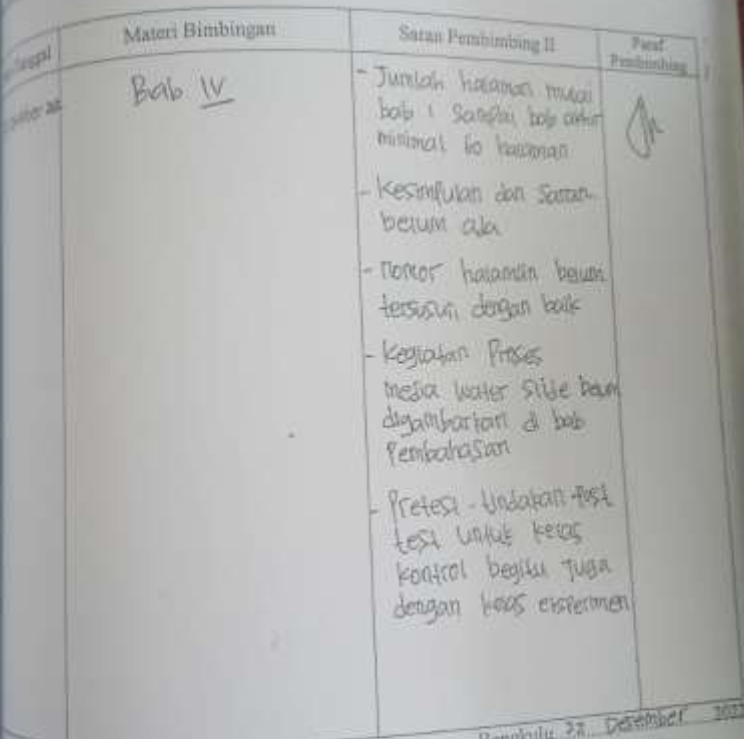 Materi Bimbingan
Saran Pembimbing II
Paraf
Pembimbing
Bab IV
- Jumlah halaman mulai
bab 1 sampai bab akhir
minimal 60 halaman
- Kesimpulan dan Saran
belum ada
- nomor halaman belum
tersusun dengan baik
- Kegiatan Proses
media water slide belum
digambarkan di bab
Pembahasan
- Pretest - tindakan - Post
test untuk kelas
kontrol begitu juga
dengan kelas eksperimen
Bengkulu, 22 Desember